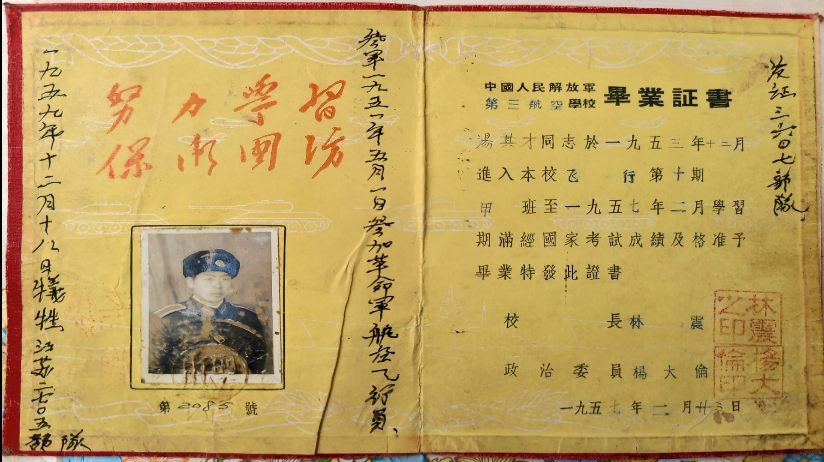 努力學習
保衛國防
一九五九年十二月十八日犧牲江苏五部隊
參軍一九五一年五月一日參加革命軍航空員
第2085號
中國人民解放軍
第三航空學校
畢業証書
湯其才同志於一九五三年十二月
進入本校飞行第十期
甲班至一九五七年二月學習
期滿經國家考試成績及格准予
畢業特發此證書
校長林震
政治委員楊大倫
一九五七年二月廿三日
林震之印
楊大倫印
发証三七部隊